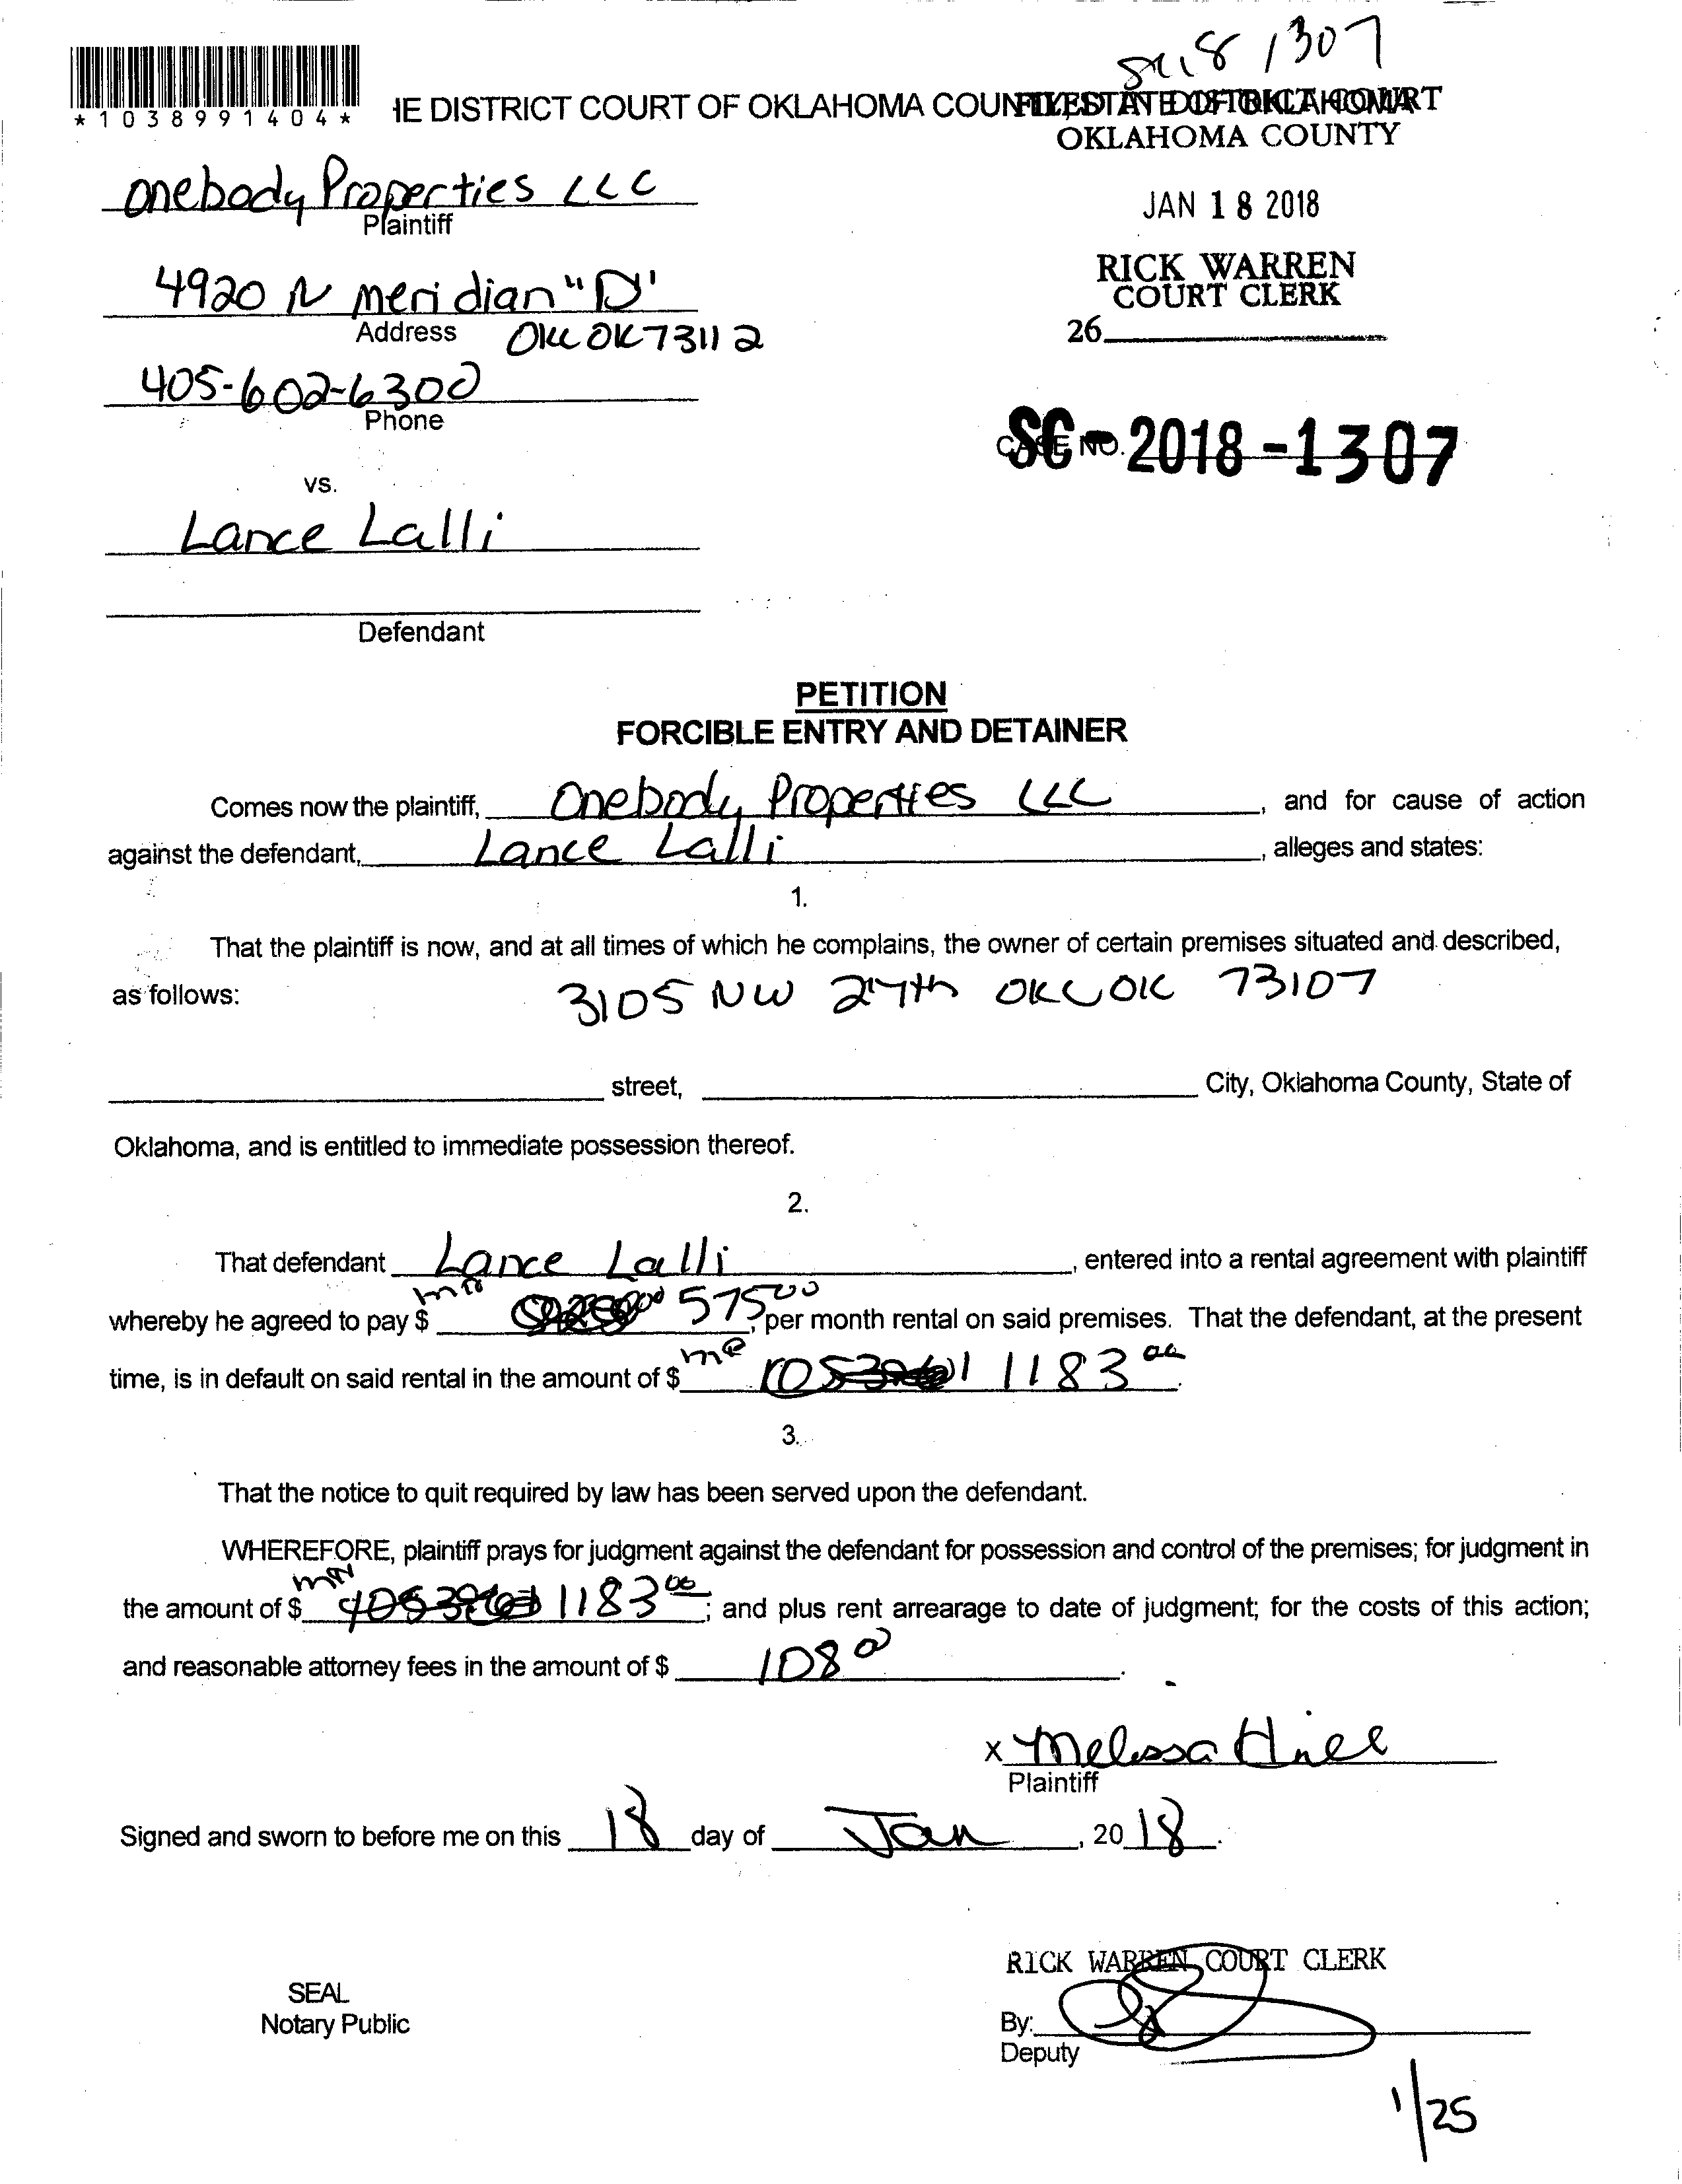 SC18 1307
*1038991404*
IE DISTRICT COURT OF OKLAHOMA COUNTY, STATE OF OKLAHOMA
FILED IN DISTRICT COURT
OKLAHOMA COUNTY
Onebody Properties LLC
Plaintiff
JAN 18 2018
4920 N Meridian "D"
Address OKC OK 73112
RICK WARREN
COURT CLERK
26
405-602-6300
Phone
CASE NO. SC-2018-1307
vs.
Lance Lalli
Defendant
PETITION
FORCIBLE ENTRY AND DETAINER
Comes now the plaintiff, Onebody Properties LLC, and for cause of action
against the defendant, Lance Lalli, alleges and states:
1.
That the plaintiff is now, and at all times of which he complains, the owner of certain premises situated and described,
as follows: 3105 NW 27th OKC OK 73107
street, City, Oklahoma County, State of
Oklahoma, and is entitled to immediate possession thereof.
2.
That defendant Lance Lalli, entered into a rental agreement with plaintiff
whereby he agreed to pay $ 575 00, per month rental on said premises. That the defendant, at the present
time, is in default on said rental in the amount of $ 1183 00.
3.
That the notice to quit required by law has been served upon the defendant.
WHEREFORE, plaintiff prays for judgment against the defendant for possession and control of the premises; for judgment in
the amount of $ 1183 00; and plus rent arrearage to date of judgment; for the costs of this action;
and reasonable attorney fees in the amount of $ 108 0.
x Melissa Hill
Plaintiff
Signed and sworn to before me on this 18 day of Jan, 2018.
RICK WARREN COURT CLERK
SEAL
Notary Public
By:
Deputy
1/25